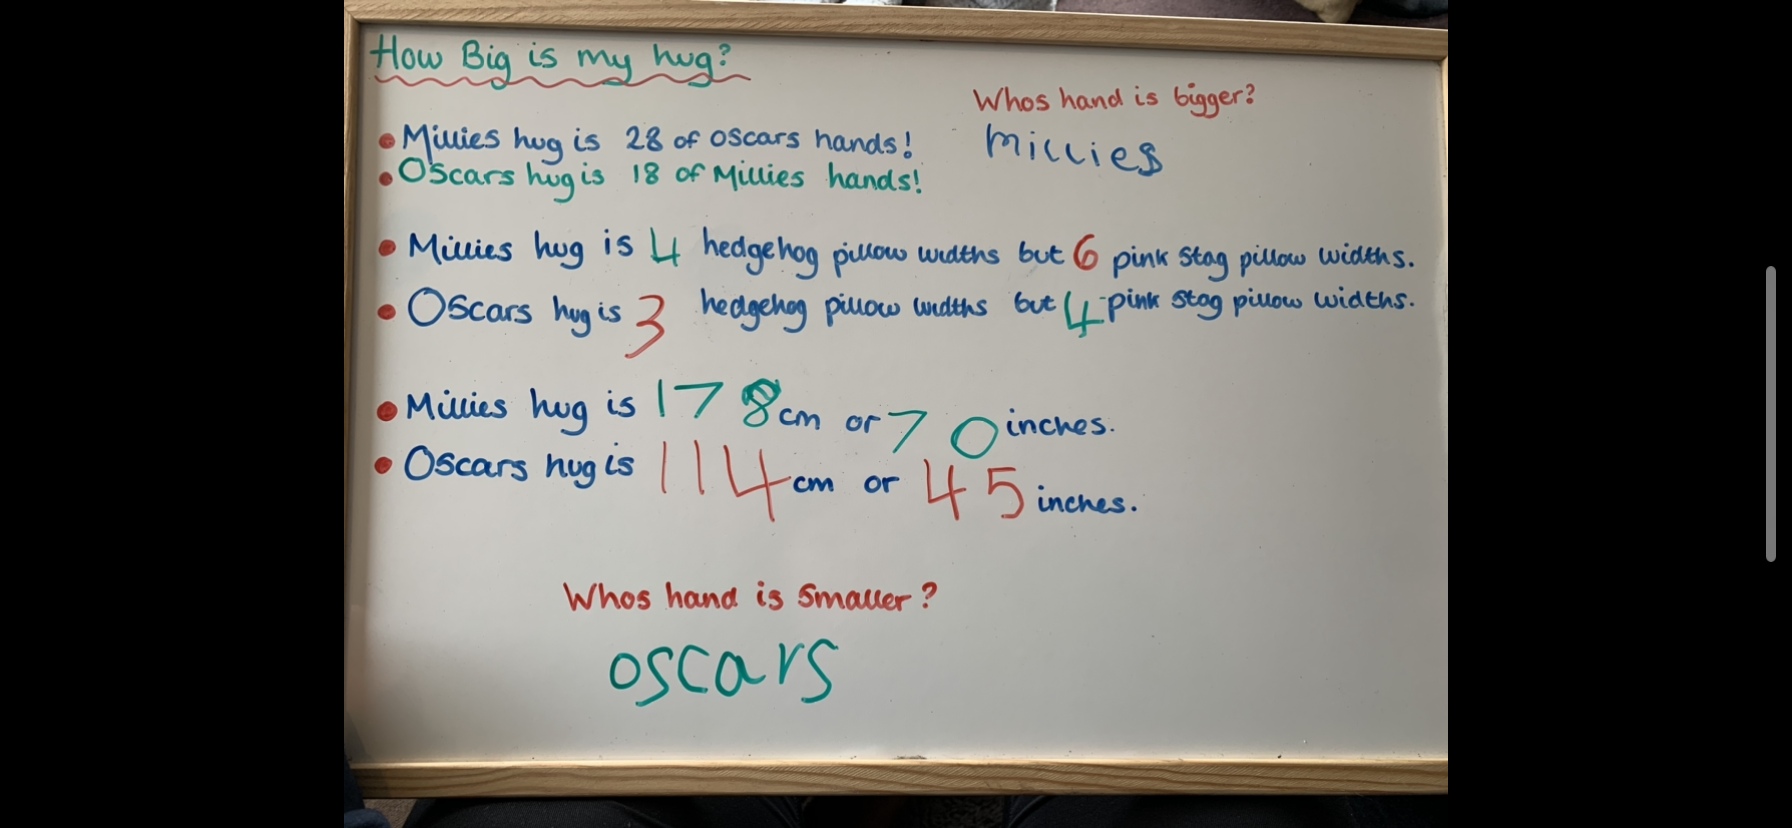 How Big is my hug?
Whos hand is bigger?
millies
• Millies hug is 28 of oscars hands!
• Oscars hug is 18 of Millies hands!
• Millies hug is 4 hedgehog pillow widths but 6 pink stag pillow widths.
• Oscars hug is 3 hedgehog pillow widths but 4 pink stag pillow widths.
• Millies hug is 178cm or 70 inches.
• Oscars hug is 114cm or 45 inches.
Whos hand is smaller?
oscars